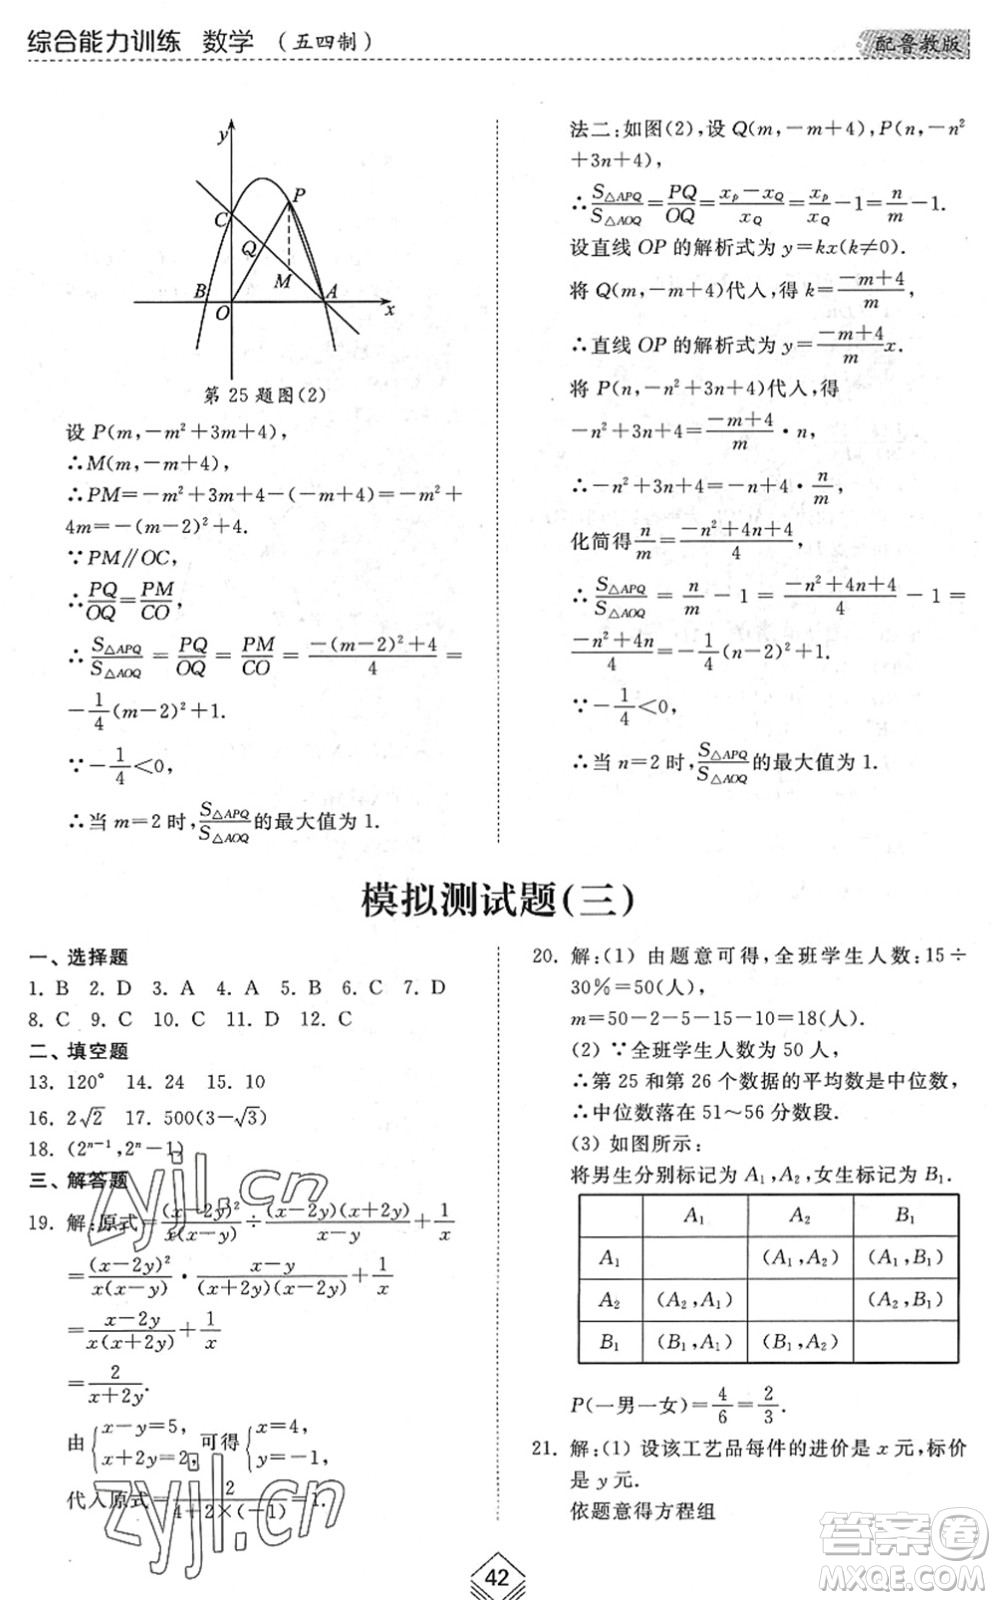 综合能力训练 数学 （五四制）
配鲁教版
y
C
P
Q
M
B
O
A
x
第 25 题图(2)
设 P(m,－m²＋3m＋4),
∴M(m,－m＋4),
∴PM＝－m²＋3m＋4－(－m＋4)＝－m²＋
4m＝－(m－2)²＋4.
∵PM∥OC,
∴PQ/OQ＝PM/CO,
∴S△APQ/S△AOQ＝PQ/OQ＝PM/CO＝[－(m－2)²＋4]/4＝
－1/4(m－2)²＋1.
∵－1/4＜0,
∴当 m＝2 时,S△APQ/S△AOQ的最大值为 1.
法二:如图(2),设 Q(m,－m＋4),P(n,－n²
＋3n＋4),
∴S△APQ/S△AOQ＝PQ/OQ＝(xₚ－x_Q)/x_Q＝xₚ/x_Q－1＝n/m－1.
设直线 OP 的解析式为 y＝kx(k≠0).
将 Q(m,－m＋4)代入,得 k＝(－m＋4)/m,
∴直线 OP 的解析式为 y＝(－m＋4)/m x.
将 P(n,－n²＋3n＋4)代入,得
－n²＋3n＋4＝(－m＋4)/m·n,
∴－n²＋3n＋4＝－n＋4·n/m,
化简得n/m＝(－n²＋4n＋4)/4,
∴S△APQ/S△AOQ＝n/m－1＝(－n²＋4n＋4)/4－1＝
(－n²＋4n)/4＝－1/4(n－2)²＋1.
∵－1/4＜0,
∴当 n＝2 时,S△APQ/S△AOQ的最大值为 1.
模拟测试题(三)
一、选择题
1. B 2. D 3. A 4. A 5. B 6. C 7. D
8. C 9. C 10. C 11. D 12. C
二、填空题
13. 120° 14. 24 15. 10
16. 2√2 17. 500(3－√3)
18. (2ⁿ⁻¹,2ⁿ－1)
三、解答题
19. 解:原式＝(x－2y)²/x(x－y)÷(x－2y)(x＋2y)/(x－y)＋1/x
＝(x－2y)²/x(x－y)·(x－y)/(x＋2y)(x－2y)＋1/x
＝(x－2y)/x(x＋2y)＋1/x
＝2/(x＋2y).
由{x－y＝5, x＋2y＝2, 可得{x＝4, y＝－1,
代入原式＝2/[4＋2×(－1)]＝1.
20. 解:(1) 由题意可得,全班学生人数:15÷
30%＝50(人),
m＝50－2－5－15－10＝18(人).
(2) ∵全班学生人数为 50 人,
∴第 25 和第 26 个数据的平均数是中位数,
∴中位数落在 51～56 分数段.
(3) 如图所示:
将男生分别标记为 A₁,A₂,女生标记为 B₁.
A₁ A₂ B₁
A₁ (A₁,A₂) (A₁,B₁)
A₂ (A₂,A₁) (A₂,B₁)
B₁ (B₁,A₁) (B₁,A₂)
P(一男一女)＝4/6＝2/3.
21. 解:(1) 设该工艺品每件的进价是 x 元,标价
是 y 元.
依题意得方程组
42
zyjl.cn
zyjl.cn
答案圈
MXQE.COM